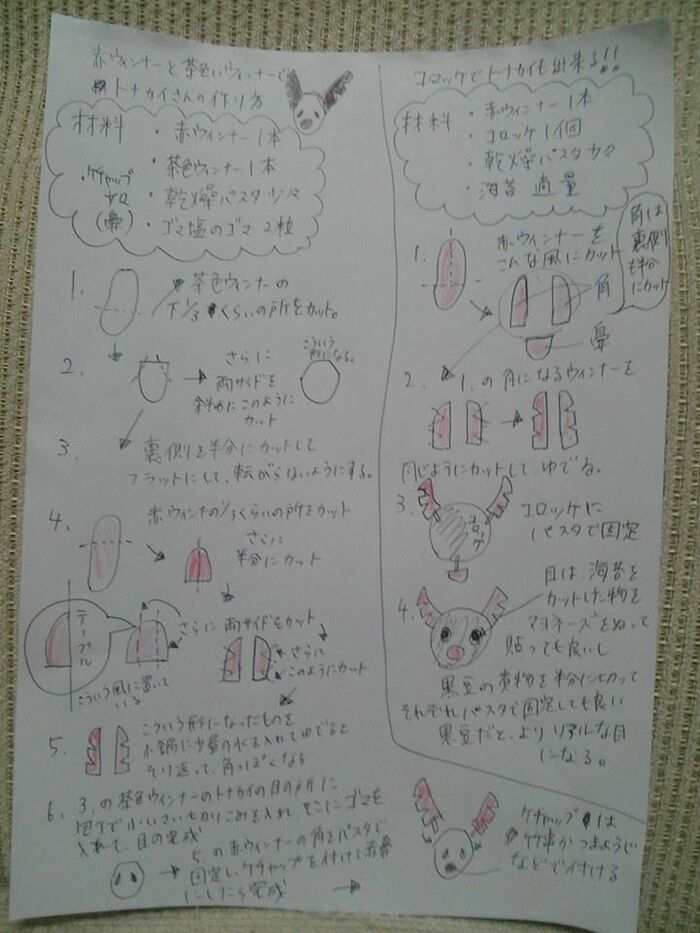 赤ウィンナーと茶色いウィンナーで
トナカイさんの作り方
材料
・赤ウィンナー1本
・茶色ウィンナー1本
・乾燥パスタ少々
・ゴマ塩のゴマ 2粒
・ケチャップ
少々
(鼻)
1.
茶色ウィンナーの
下1/3くらいの所をカット。
2.
さらに
両サイドを
斜めにこのように
カット
こういう
形になる。
3.
裏側を半分にカットして
フラットにして、転がらないようにする。
4.
赤ウィンナの1/3くらいの所をカット
さらに
半分にカット
テーブル
こういう風に置いて
いる
さらに両サイドをカット
さらに
このようにカット
5.
こういう形になったものを
小鍋に少量の水を入れてゆでると
そり返って、角っぽくなる
6.
3.の茶色ウィンナーのトナカイの目の所に
包丁で小さい切りこみを入れ、そこにゴマを
入れて、目の完成
5.の赤ウィンナーの角をパスタで
固定し、ケチャップを付けて赤鼻
にしたら完成
コロッケでトナカイも出来る!!
材料
・赤ウィンナー1本
・コロッケ1個
・乾燥パスタ少々
・海苔 適量
1.
赤ウィンナーを
こんな風にカット
角は
裏側
も半分
にカット
角
鼻
2.
1.の角になるウィンナーを
同じようにカットして、ゆでる。
3.
コロッケ
コロッケに
パスタで固定
4.
目は、海苔を
カットした物を
マヨネーズをぬって
貼っても良いし
黒豆の煮物を半分に切って
それぞれパスタで固定しても良い
黒豆だと、よりリアルな目
になる。
ケチャップは
竹串かつまようじ
などで付ける